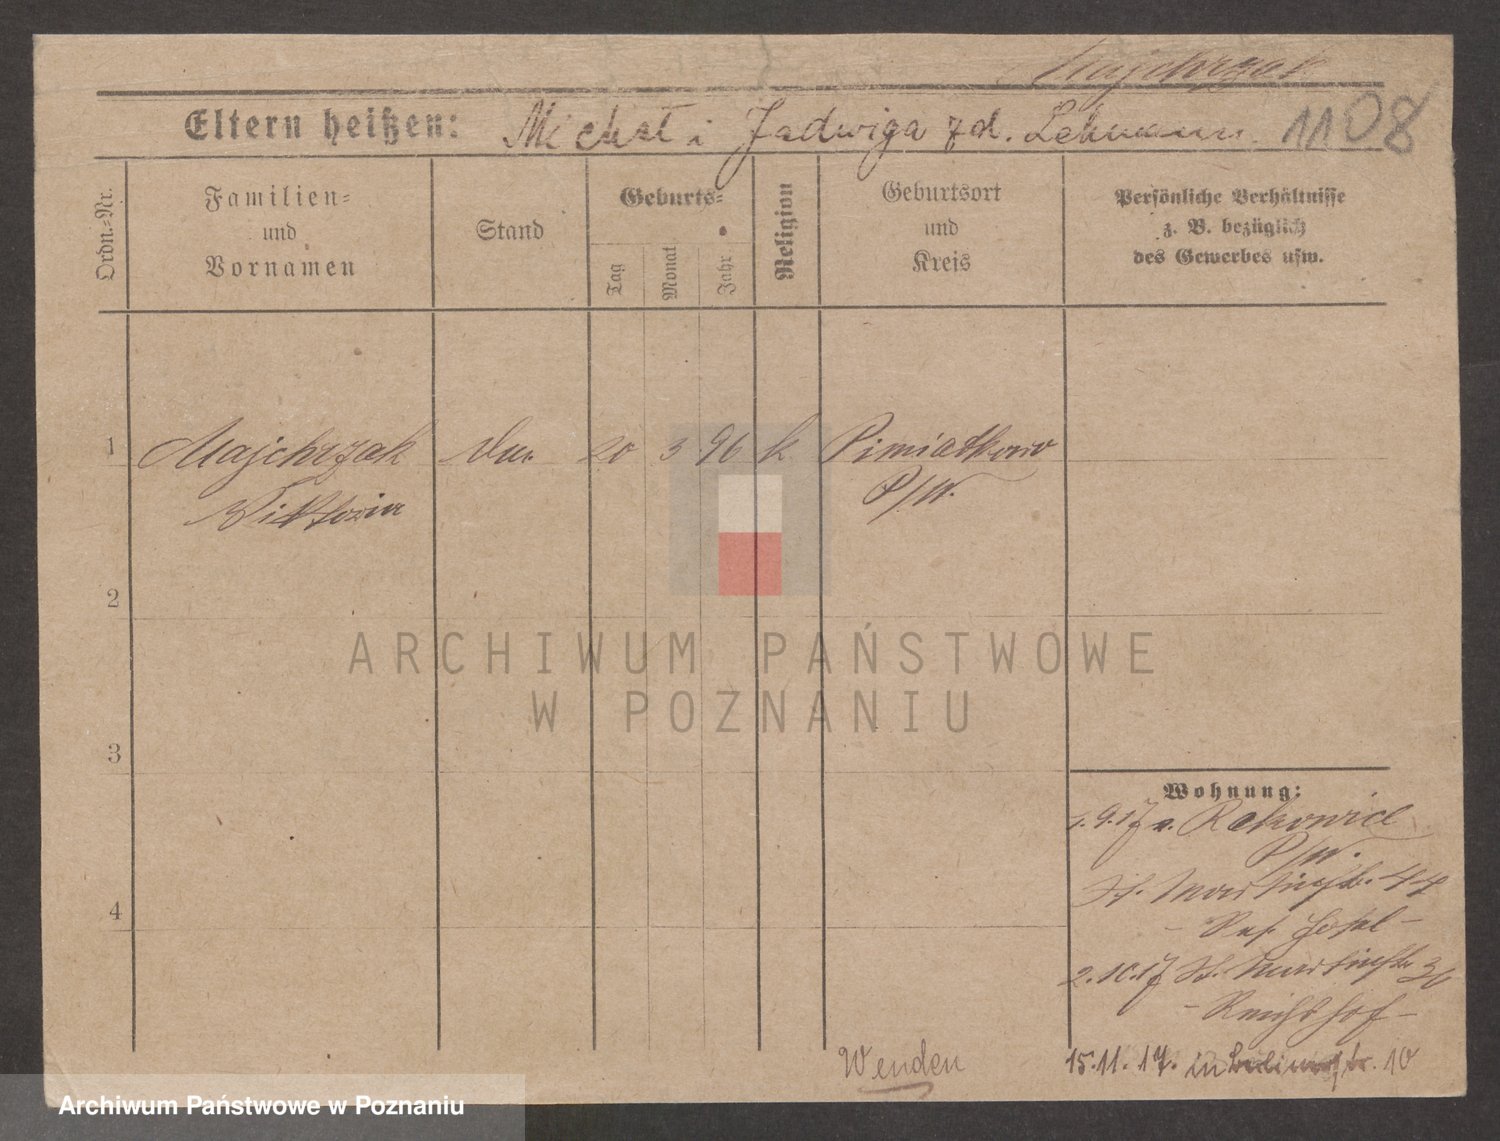 Majchrzak
Eltern heißen: Michał i Jadwiga zd. Lehmann 1108
Ordn.-Nr.
Familien-
und
Vornamen
Stand
Geburts-
Tag
Monat
Jahr
Religion
Geburtsort
und
Kreis
Persönliche Verhältnisse
z. B. bezüglich
des Gewerbes usw.
1 Majchrzak 20 3 96 k Pimiatkowo
Wiktoria P/W.
2
ARCHIWUM PAŃSTWOWE
W POZNANIU
3
Wohnung:
1.9.17 v. Rakowice
P/W.
St. Martinstr. 44
2.10.17 St. Martinstr. 36
- Reichshof -
4
15.11.17. 10
Wenden
Archiwum Państwowe w Poznaniu